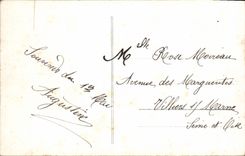 Souvenir du 13 Mai
Augustine
Mlle Rose Moireau
Avenue des Marguerites
Villiers s/ Marne
Seine et Oise